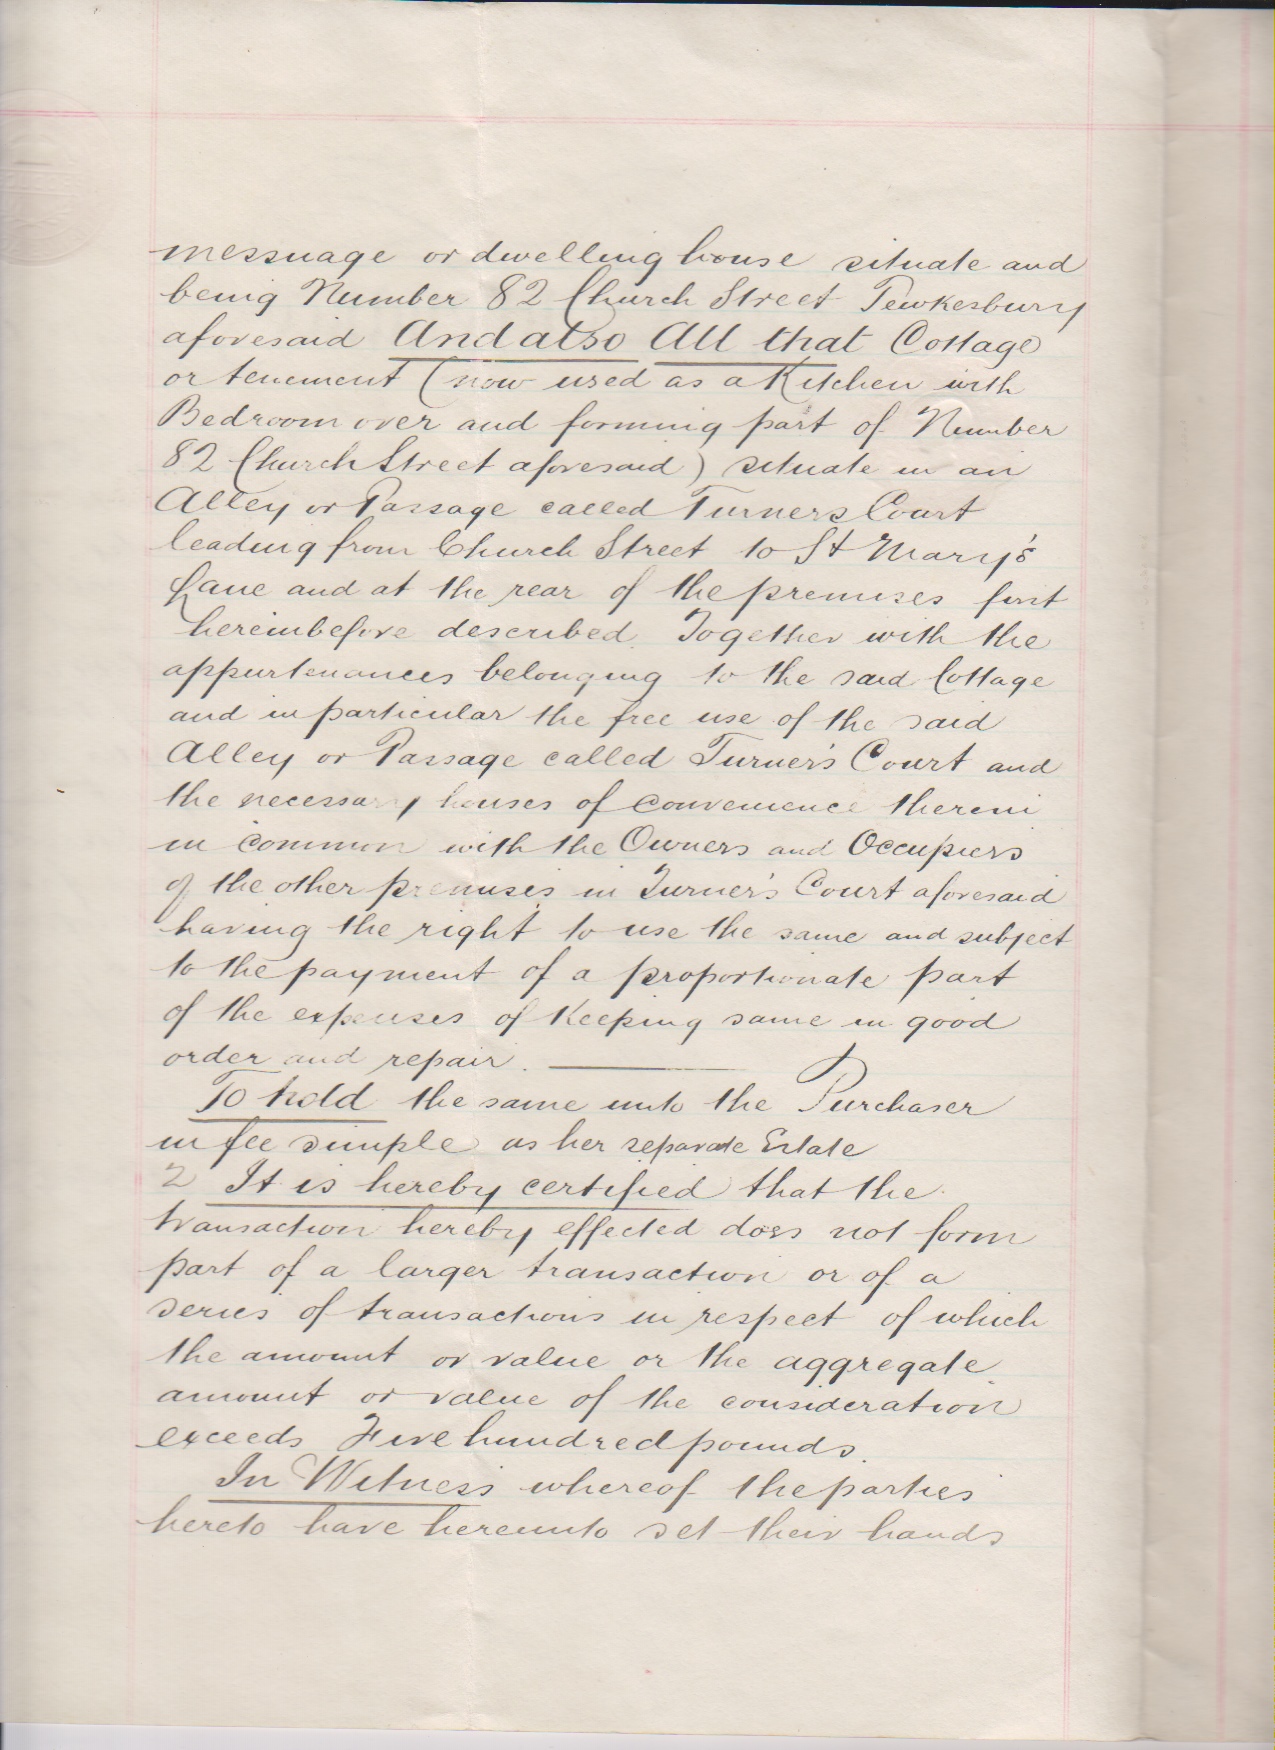 messuage or dwelling house situate and
being Number 82 Church Street Tewkesbury
aforesaid And also All that Cottage
or tenement (now used as a Kitchen with
Bedroom over and forming part of Number
82 Church Street aforesaid) situate in an
Alley or Passage called Turners Court
leading from Church Street to St Mary's
Lane and at the rear of the premises first
hereinbefore described. Together with the
appurtenances belonging to the said Cottage
and in particular the free use of the said
Alley or Passage called Turner's Court and
the necessary houses of convenience therein
in common with the Owners and Occupiers
of the other premises in Turner's Court aforesaid
having the right to use the same and subject
to the payment of a proportionate part
of the expenses of keeping same in good
order and repair.
To hold the same unto the Purchaser
in fee simple as her separate Estate
2 It is hereby certified that the
transaction hereby effected does not form
part of a larger transaction or of a
series of transactions in respect of which
the amount or value or the aggregate
amount or value of the consideration
exceeds Five hundred pounds.
In Witness whereof the parties
hereto have hereunto set their hands